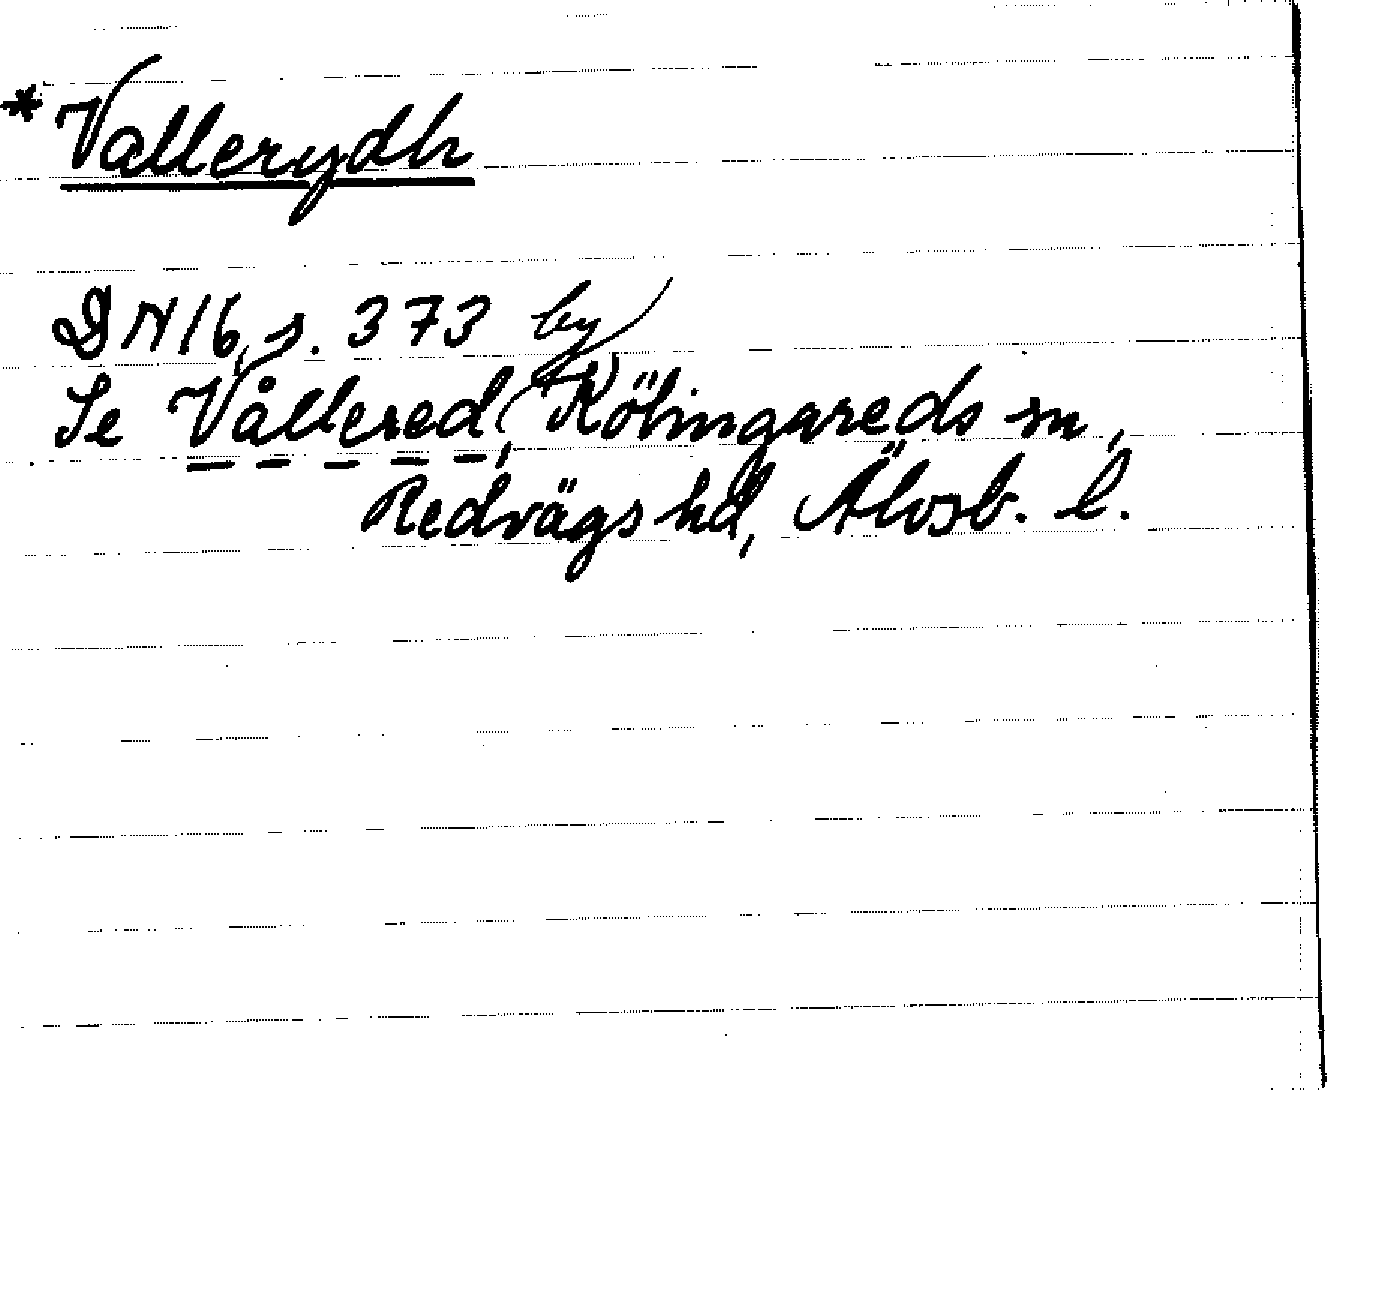 *Vallerydh
DN 16, s. 373 by
Se Vållered, Kölingareds sn,
Redvägs hd, Älvsb. l.